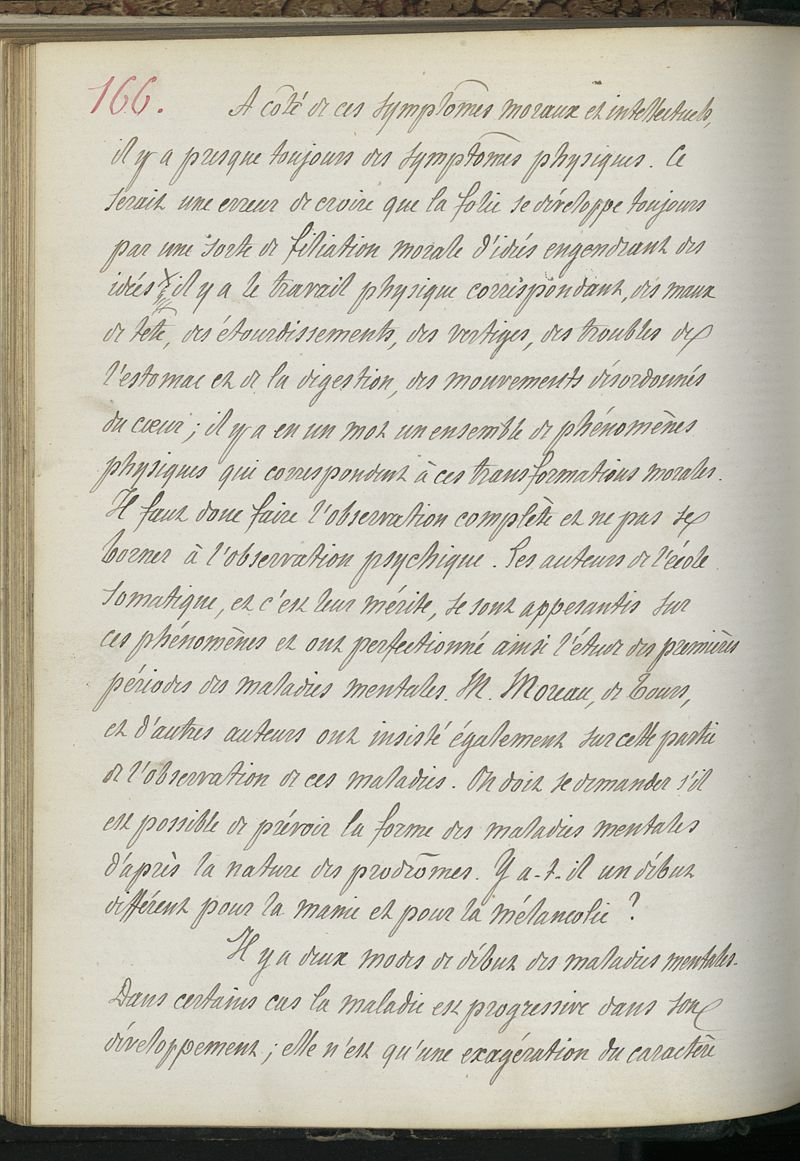 166.
A côté de ces symptômes moraux et intellectuels,
il y a presque toujours des symptômes physiques. Ce
serait une erreur de croire que la folie se développe toujours
par une sorte de filiation morale d'idées engendrant des
idées; il y a le travail physique correspondant, des maux
de tête, des étourdissements, des vertiges, des troubles de
l'estomac et de la digestion, des mouvements désordonnés
du cœur; il y a en un mot un ensemble de phénomènes
physiques qui correspondent à ces transformations morales.
Il faut donc faire l'observation complète et ne pas se
borner à l'observation psychique. Les auteurs de l'école
somatique, et c'est leur mérite, se sont appesantis sur
ces phénomènes et ont perfectionné ainsi l'étude des premières
périodes des maladies mentales. M. Moreau, de Tours,
et d'autres auteurs ont insisté également sur cette partie
de l'observation de ces maladies. On doit se demander s'il
est possible de prévoir la forme des maladies mentales
d'après la nature des prodrômes. Y a-t-il un début
différent pour la manie et pour la mélancolie ?
Il y a deux modes de début des maladies mentales.
Dans certains cas la maladie est progressive dans son
développement; elle n'est qu'une exagération du caractère